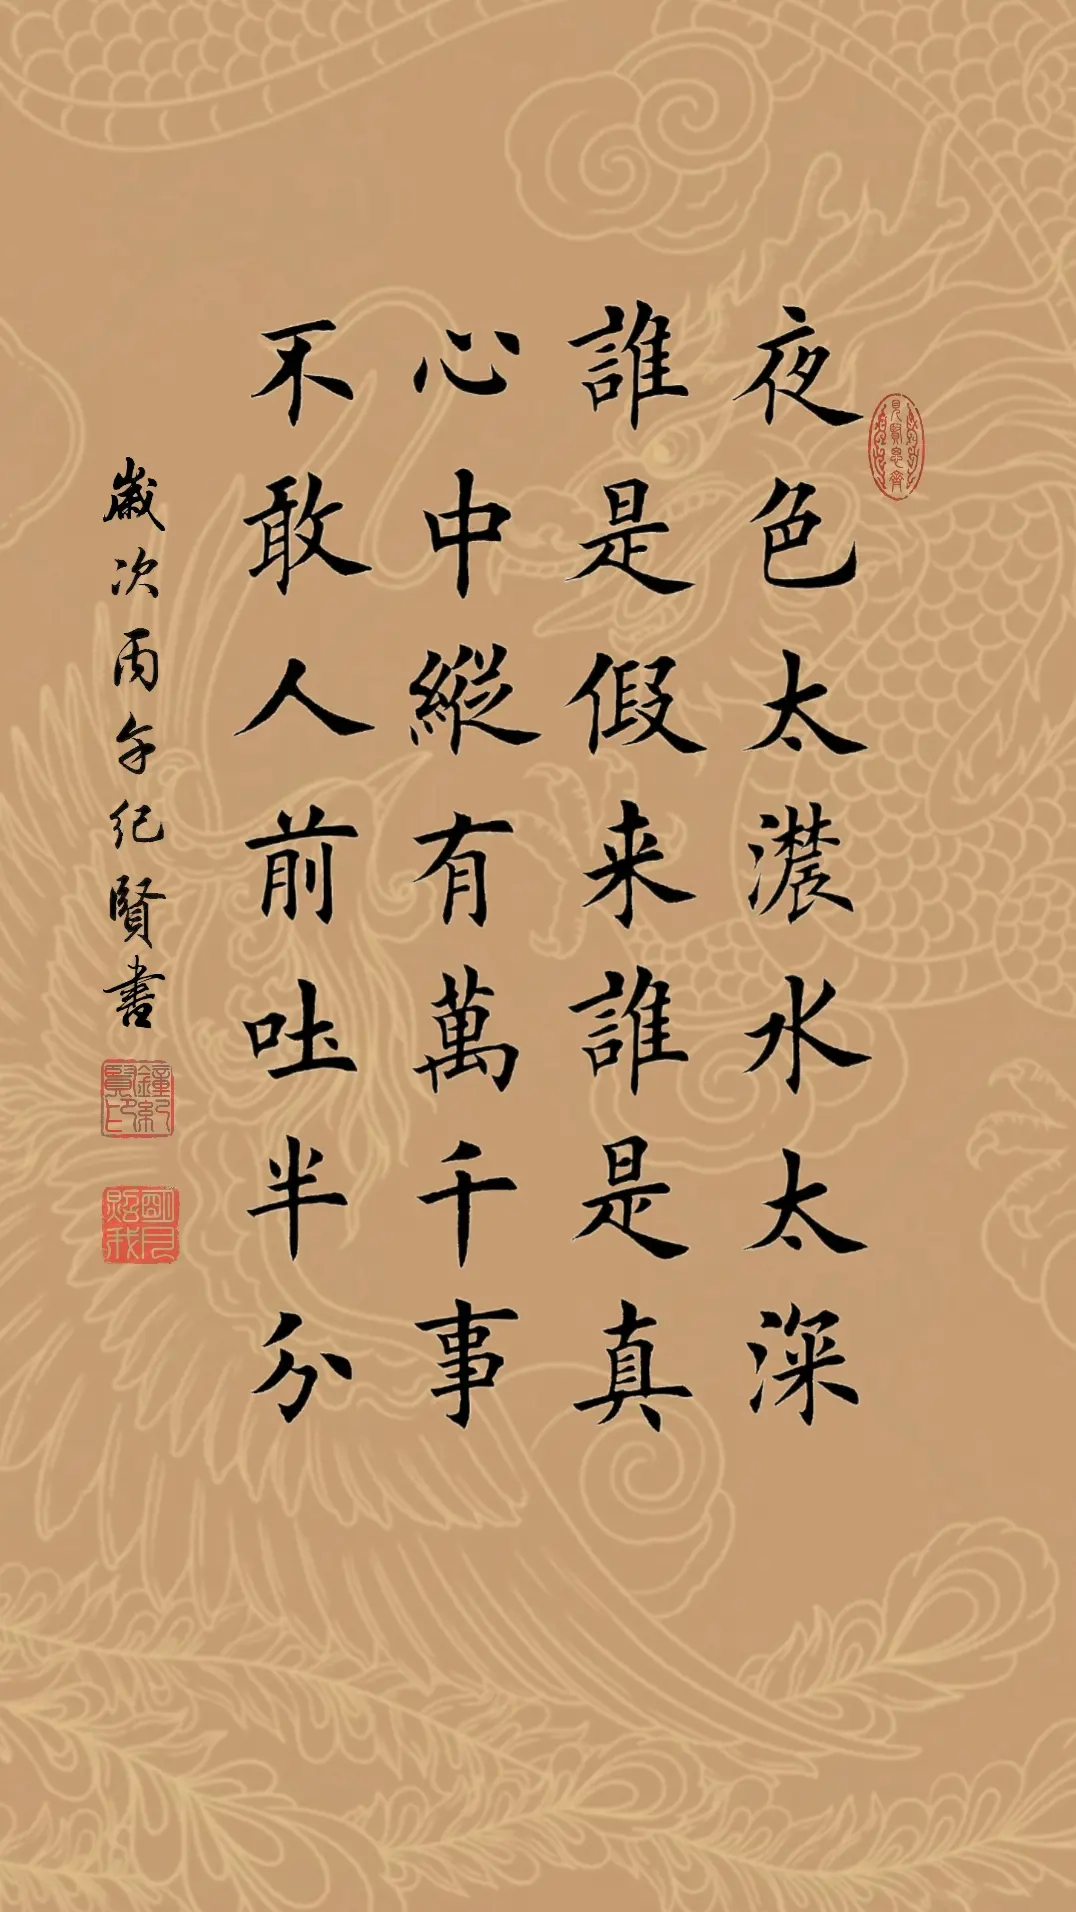 夜色太濃水太深
誰是假来誰是真
心中縱有萬千事
不敢人前吐半分
歲次丙午纪賢書
見賢思齊
鐘紀賢印